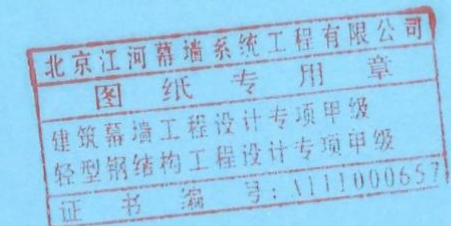 北京江河幕墙系统工程有限公司
图纸专用章
建筑幕墙工程设计专项甲级
轻型钢结构工程设计专项甲级
证书编号：A111000657